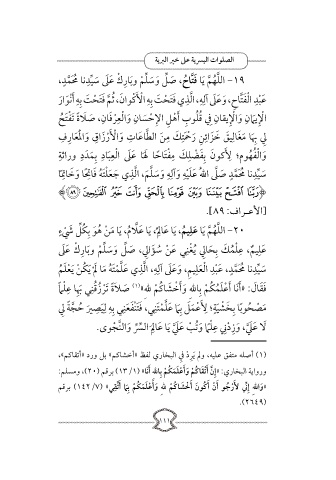 الصلوات اليسرية على خير البرية
١٩- اللَّهُمَّ يَا فَتَّاحُ، صَلِّ وَسَلِّمْ وبَارِكْ عَلَى سَيِّدِنا مُحَمَّدٍ،
عَبْدِ الْفَتَّاحِ، وَعَلَى آلِهِ، الَّذِي فَتَحْتَ بِهِ الْأَكْوَانَ، ثُمَّ فَتَحْتَ بِهِ أَنْوَارَ
الْإِيمَانِ وَالْإِيقَانِ فِي قُلُوبِ أَهْلِ الْإِحْسَانِ وَالْعِرْفَانِ، صَلَاةً تَفْتَحُ
لِي بِهَا مَغَالِيقَ خَزَائِنِ رَحْمَتِكَ مِنَ الطَّاعَاتِ وَالْأَرْزَاقِ وَالْمَعَارِفِ
وَالْفُهُومِ؛ لِأَكُونَ بِفَضْلِكَ مِفْتَاحًا لَهَا عَلَى الْعِبَادِ بِمَدَدِ وِرَاثَةِ
سَيِّدِنا مُحَمَّدٍ صَلَّى اللهُ عَلَيْهِ وَآلِهِ وَسَلَّمَ، الَّذِي جَعَلْتَهُ فَاتِحًا وَخَاتِمًا
﴿رَبَّنَا افْتَحْ بَيْنَنَا وَبَيْنَ قَوْمِنَا بِالْحَقِّ وَأَنْتَ خَيْرُ الْفَاتِحِينَ ﴿٨٩﴾﴾
[الأعراف: ٨٩].
٢٠- اللَّهُمَّ يَا عَلِيمُ، يَا عَالِمُ، يَا عَلَّامُ، يَا مَنْ هُوَ بِكُلِّ شَيْءٍ
عَلِيمٌ، عِلْمُكَ بِحَالِي يُغْنِي عَنْ سُؤَالِي، صَلِّ وَسَلِّمْ وبَارِكْ عَلَى
سَيِّدِنا مُحَمَّدٍ، عَبْدِ الْعَلِيمِ، وَعَلَى آلِهِ، الَّذِي عَلَّمْتَهُ مَا لَمْ يَكُنْ يَعْلَمُ
فَقَالَ: «أَنَا أَعْلَمُكُمْ بِاللهِ وَأَخْشَاكُمْ لله»(١) صَلَاةً تَرْزُقُنِي بِهَا عِلْمًا
مَصْحُوبًا بِخَشْيَةٍ؛ لِأَعْمَلَ بِمَا عَلَّمْتَنِي، فَتَنْفَعَنِي بِهِ لِيَصِيرَ حُجَّةً لِي
لَا عَلَيَّ، وَزِدْنِي عِلْمًا وَتُبْ عَلَيَّ يَا عَالِمَ السِّرِّ وَالنَّجْوَى.
(١) أصله متفق عليه، ولم يَرِدْ في البخاري لفظ «أخشاكم» بل ورد «أتقاكم»،
ورواية البخاري: «إِنَّ أَتْقَاكُمْ وَأَعْلَمَكُمْ بِاللهِ أَنَا» (١/ ١٣) برقم (٢٠)، ومسلم:
«وَاللهِ إِنِّي لَأَرْجُو أَنْ أَكُونَ أَخْشَاكُمْ للهِ وَأَعْلَمَكُمْ بِمَا أَتَّقِي» (٧/ ١٤٢) برقم
(٢٦٤٩).
١١١